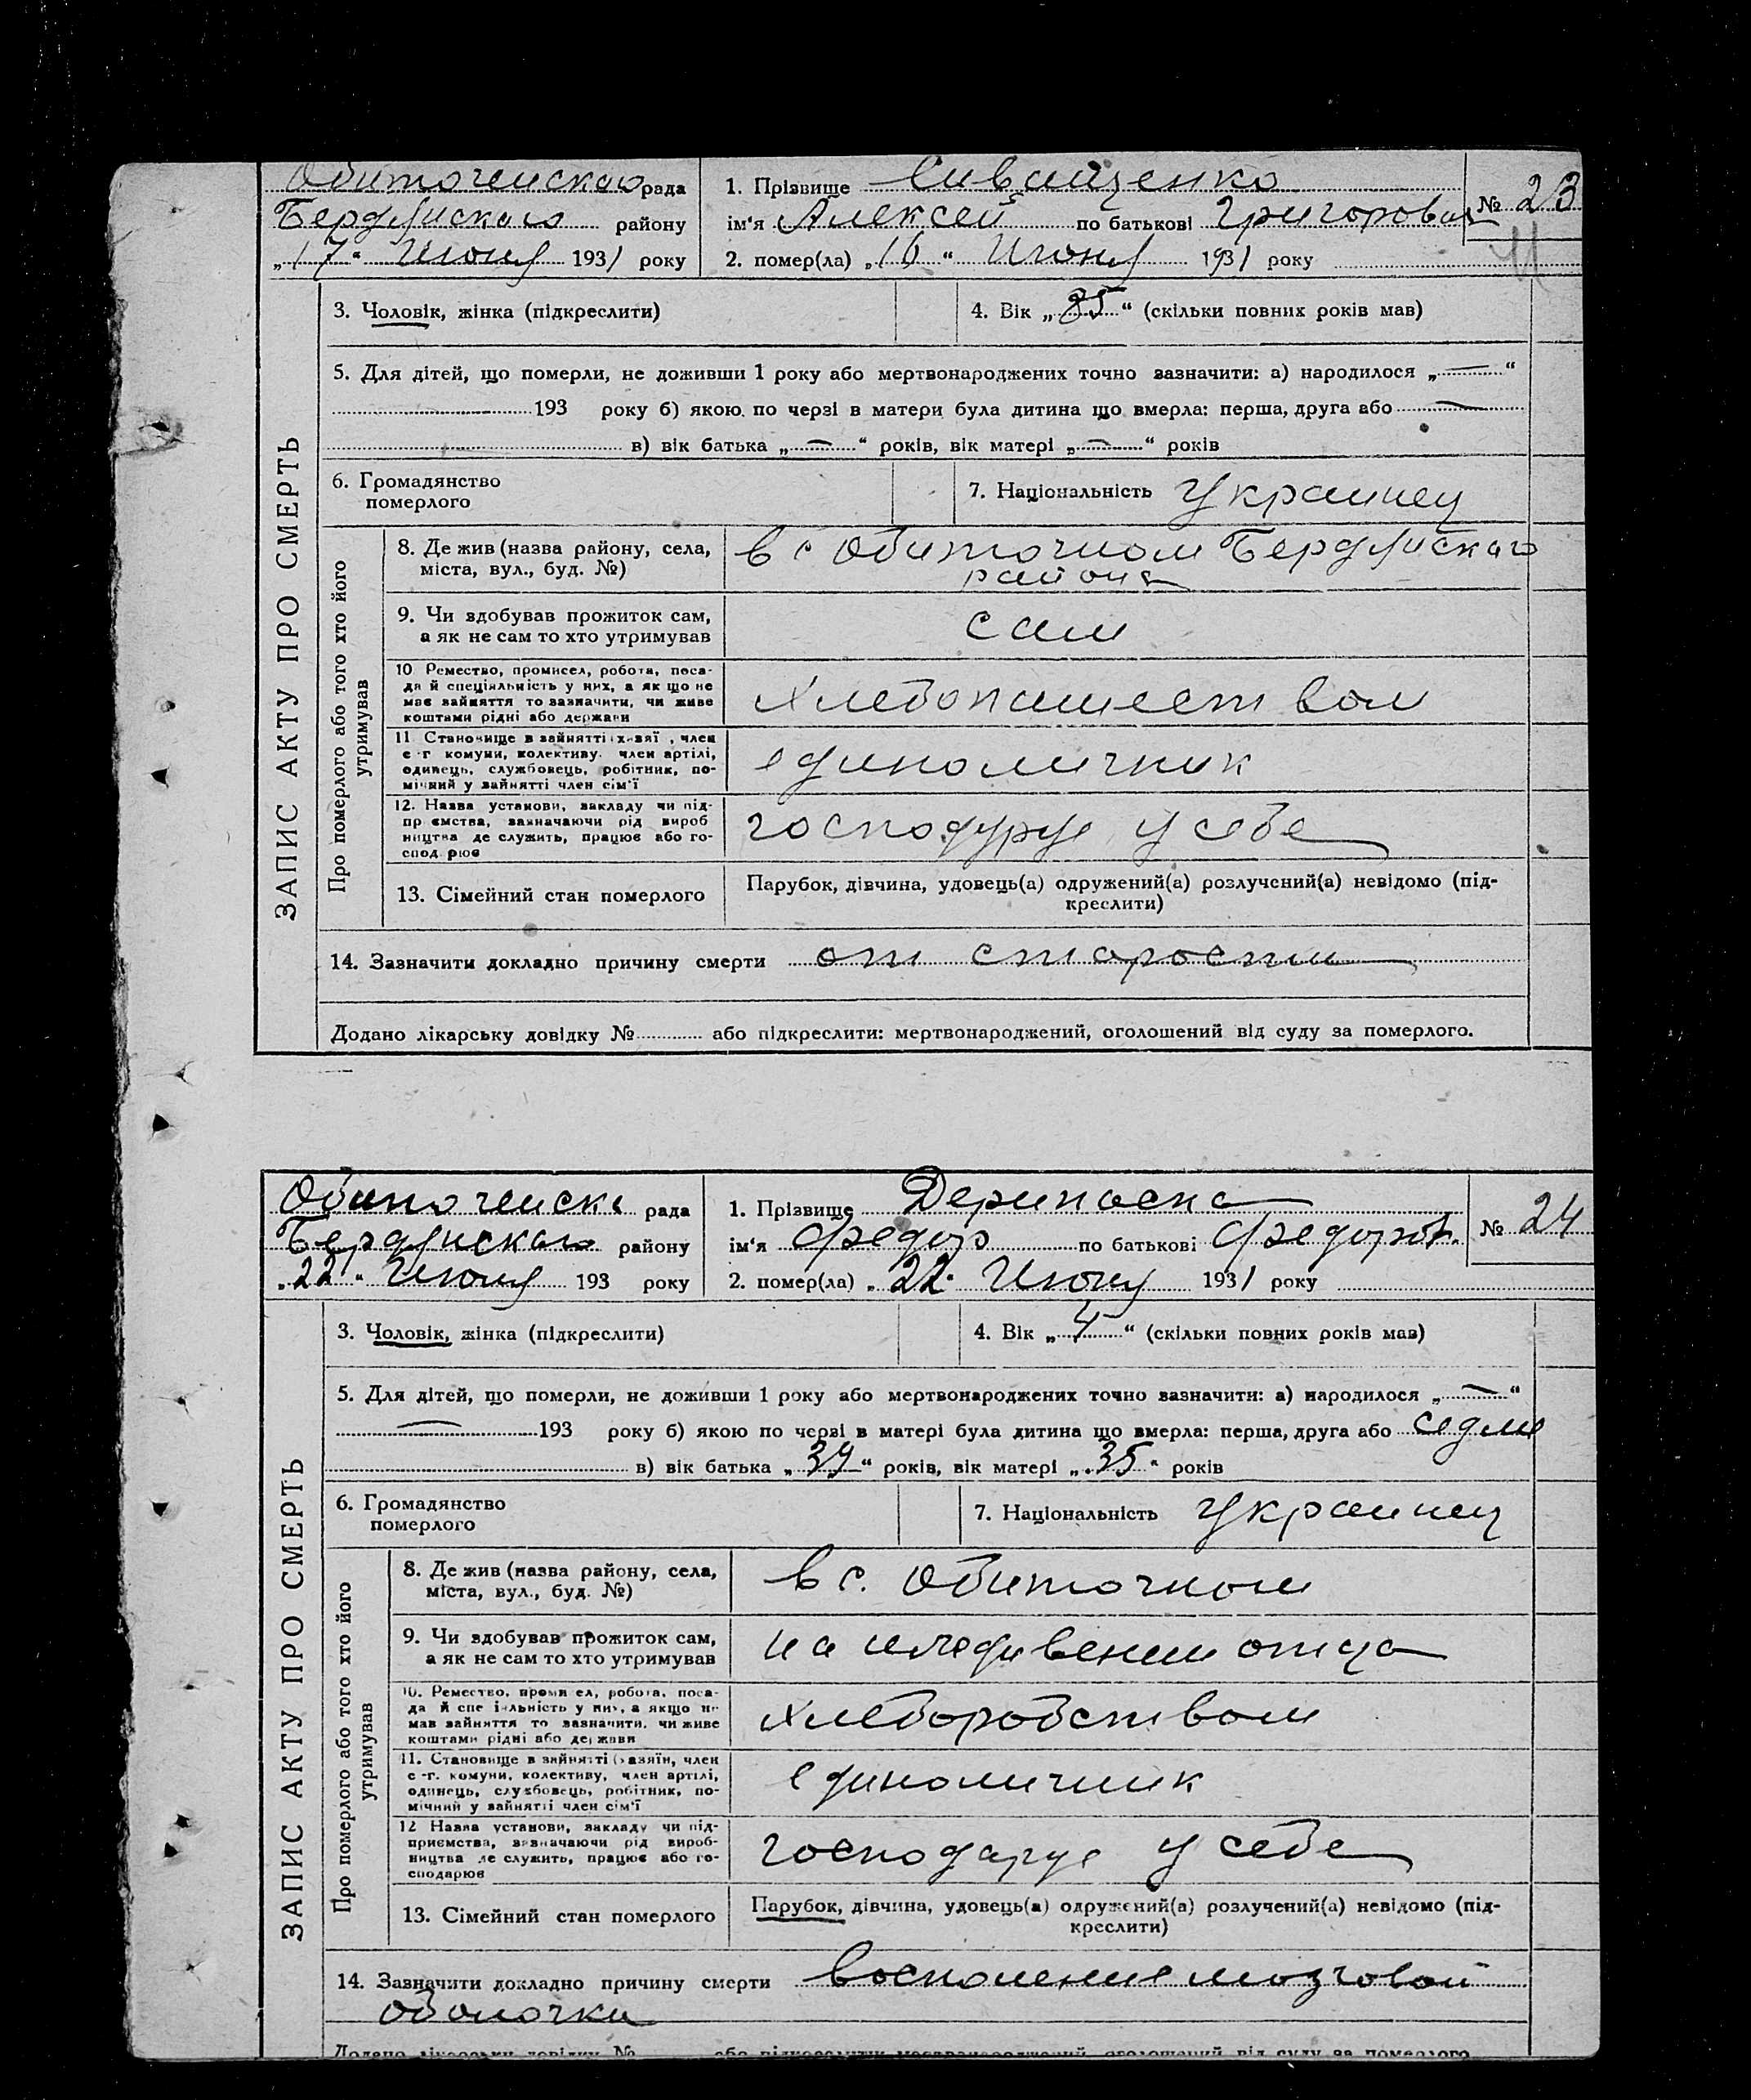 Обиточенская рада
1. Прізвище Сивайценко
№ 23
Бердянского району
ім'я Алексей по батькові Григорович
„17“ Июня 1931 року
2. помер(ла) „16“ Июня 1931 року
3. Чоловік, жінка (підкреслити)
4. Вік „85“ (скільки повних років мав)
5. Для дітей, що померли, не доживши 1 року або мертвонароджених точно зазначити: а) народилося „—“
193 року б) якою по черзі в матери була дитина що вмерла: перша, друга або —
в) вік батька „—“ років, вік матері „—“ років
6. Громадянство
померлого
7. Національність Украинец
ЗАПИС АКТУ ПРО СМЕРТЬ
Про померлого або того хто його
утримував
8. Де жив (назва району, села,
міста, вул., буд. №)
в с Обиточном Бердянского
района
9. Чи здобував прожиток сам,
а як не сам то хто утримував
сам
10 Ремество, промисел, робота, поса-
да й спеціяльність у них, а як що не
має зайняття то зазначити, чи живе
коштами рідні або держави
хлебопашеством
11 Становище в зайнятті , член
с-г комуни, колективу, член артілі,
одинець, службовець, робітник, по-
мічний у зайнятті член сім'ї
единоличник
12. Назва установи, закладу чи під-
приємства, зазначаючи рід вироб
ництва де служить, працює або го-
сподарює
господарує у себе
13. Сімейний стан померлого
Парубок, дівчина, удовець(а) одружений(а) розлучений(а) невідомо (під-
креслити)
14. Зазначити докладно причину смерти от старости
Додано лікарську довідку № або підкреслити: мертвонароджений, оголошений від суду за померлого.
Обиточенска рада
1. Прізвище Дерипаска
№ 24
Бердянского району
ім'я Федор по батькові Федоров.
„22“ Июня 193 року
2. помер(ла) „22“ Июня 1931 року
3. Чоловік, жінка (підкреслити)
4. Вік „4“ (скільки повних років мав)
5. Для дітей, що померли, не доживши 1 року або мертвонароджених точно зазначити: а) народилося „—“
— 193 року б) якою по черзі в матері була дитина що вмерла: перша, друга або седме
в) вік батька „39“ років, вік матері „35“ років
6. Громадянство
померлого
7. Національність Украинец
ЗАПИС АКТУ ПРО СМЕРТЬ
Про померлого або того хто його
утримував
8. Де жив (назва району, села,
міста, вул., буд. №)
в с. Обиточном
9. Чи здобував прожиток сам,
а як не сам то хто утримував
на иждивении отца
10. Ремество, промисел, робота, поса-
да й спеціяльність у них, а якщо не
мав зайняття то зазначити, чи живе
коштами рідні або держави
хлеборобством
11. Становище в зайнятті (хазяїн, член
с-г. комуни, колективу, член артілі,
одинець, службовець, робітник, по-
мічний у зайнятті член сім'ї
единоличник
12 Назва установи, закладу чи під-
приємства, зазначаючи рід вироб-
ництва де служить, працює або го-
сподарює
господарує у себе
13. Сімейний стан померлого
Парубок, дівчина, удовець(а) одружений(а) розлучений(а) невідомо (під-
креслити)
14. Зазначити докладно причину смерти воспаление мозговой
оболочки
Додано лікарську довідку № або підкреслити мертвонароджений, оголошений від суду за померлого